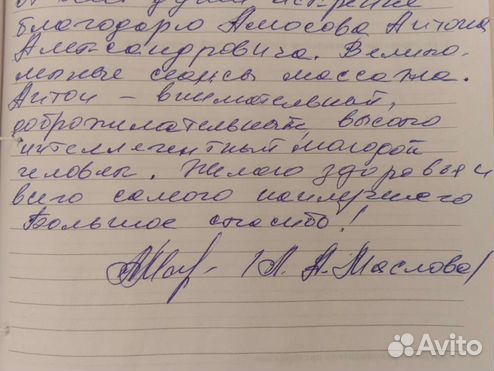 благодарю Амосова Антона
Александровича. Велико-
лепные сеансы массажа.
Антон – внимательный,
доброжилательный, высоко
интеллегентный молодой
человек. Желаю здоровья и
всего самого наилучшего
Большое спасибо!
/Л. А. Маслова/
Avito